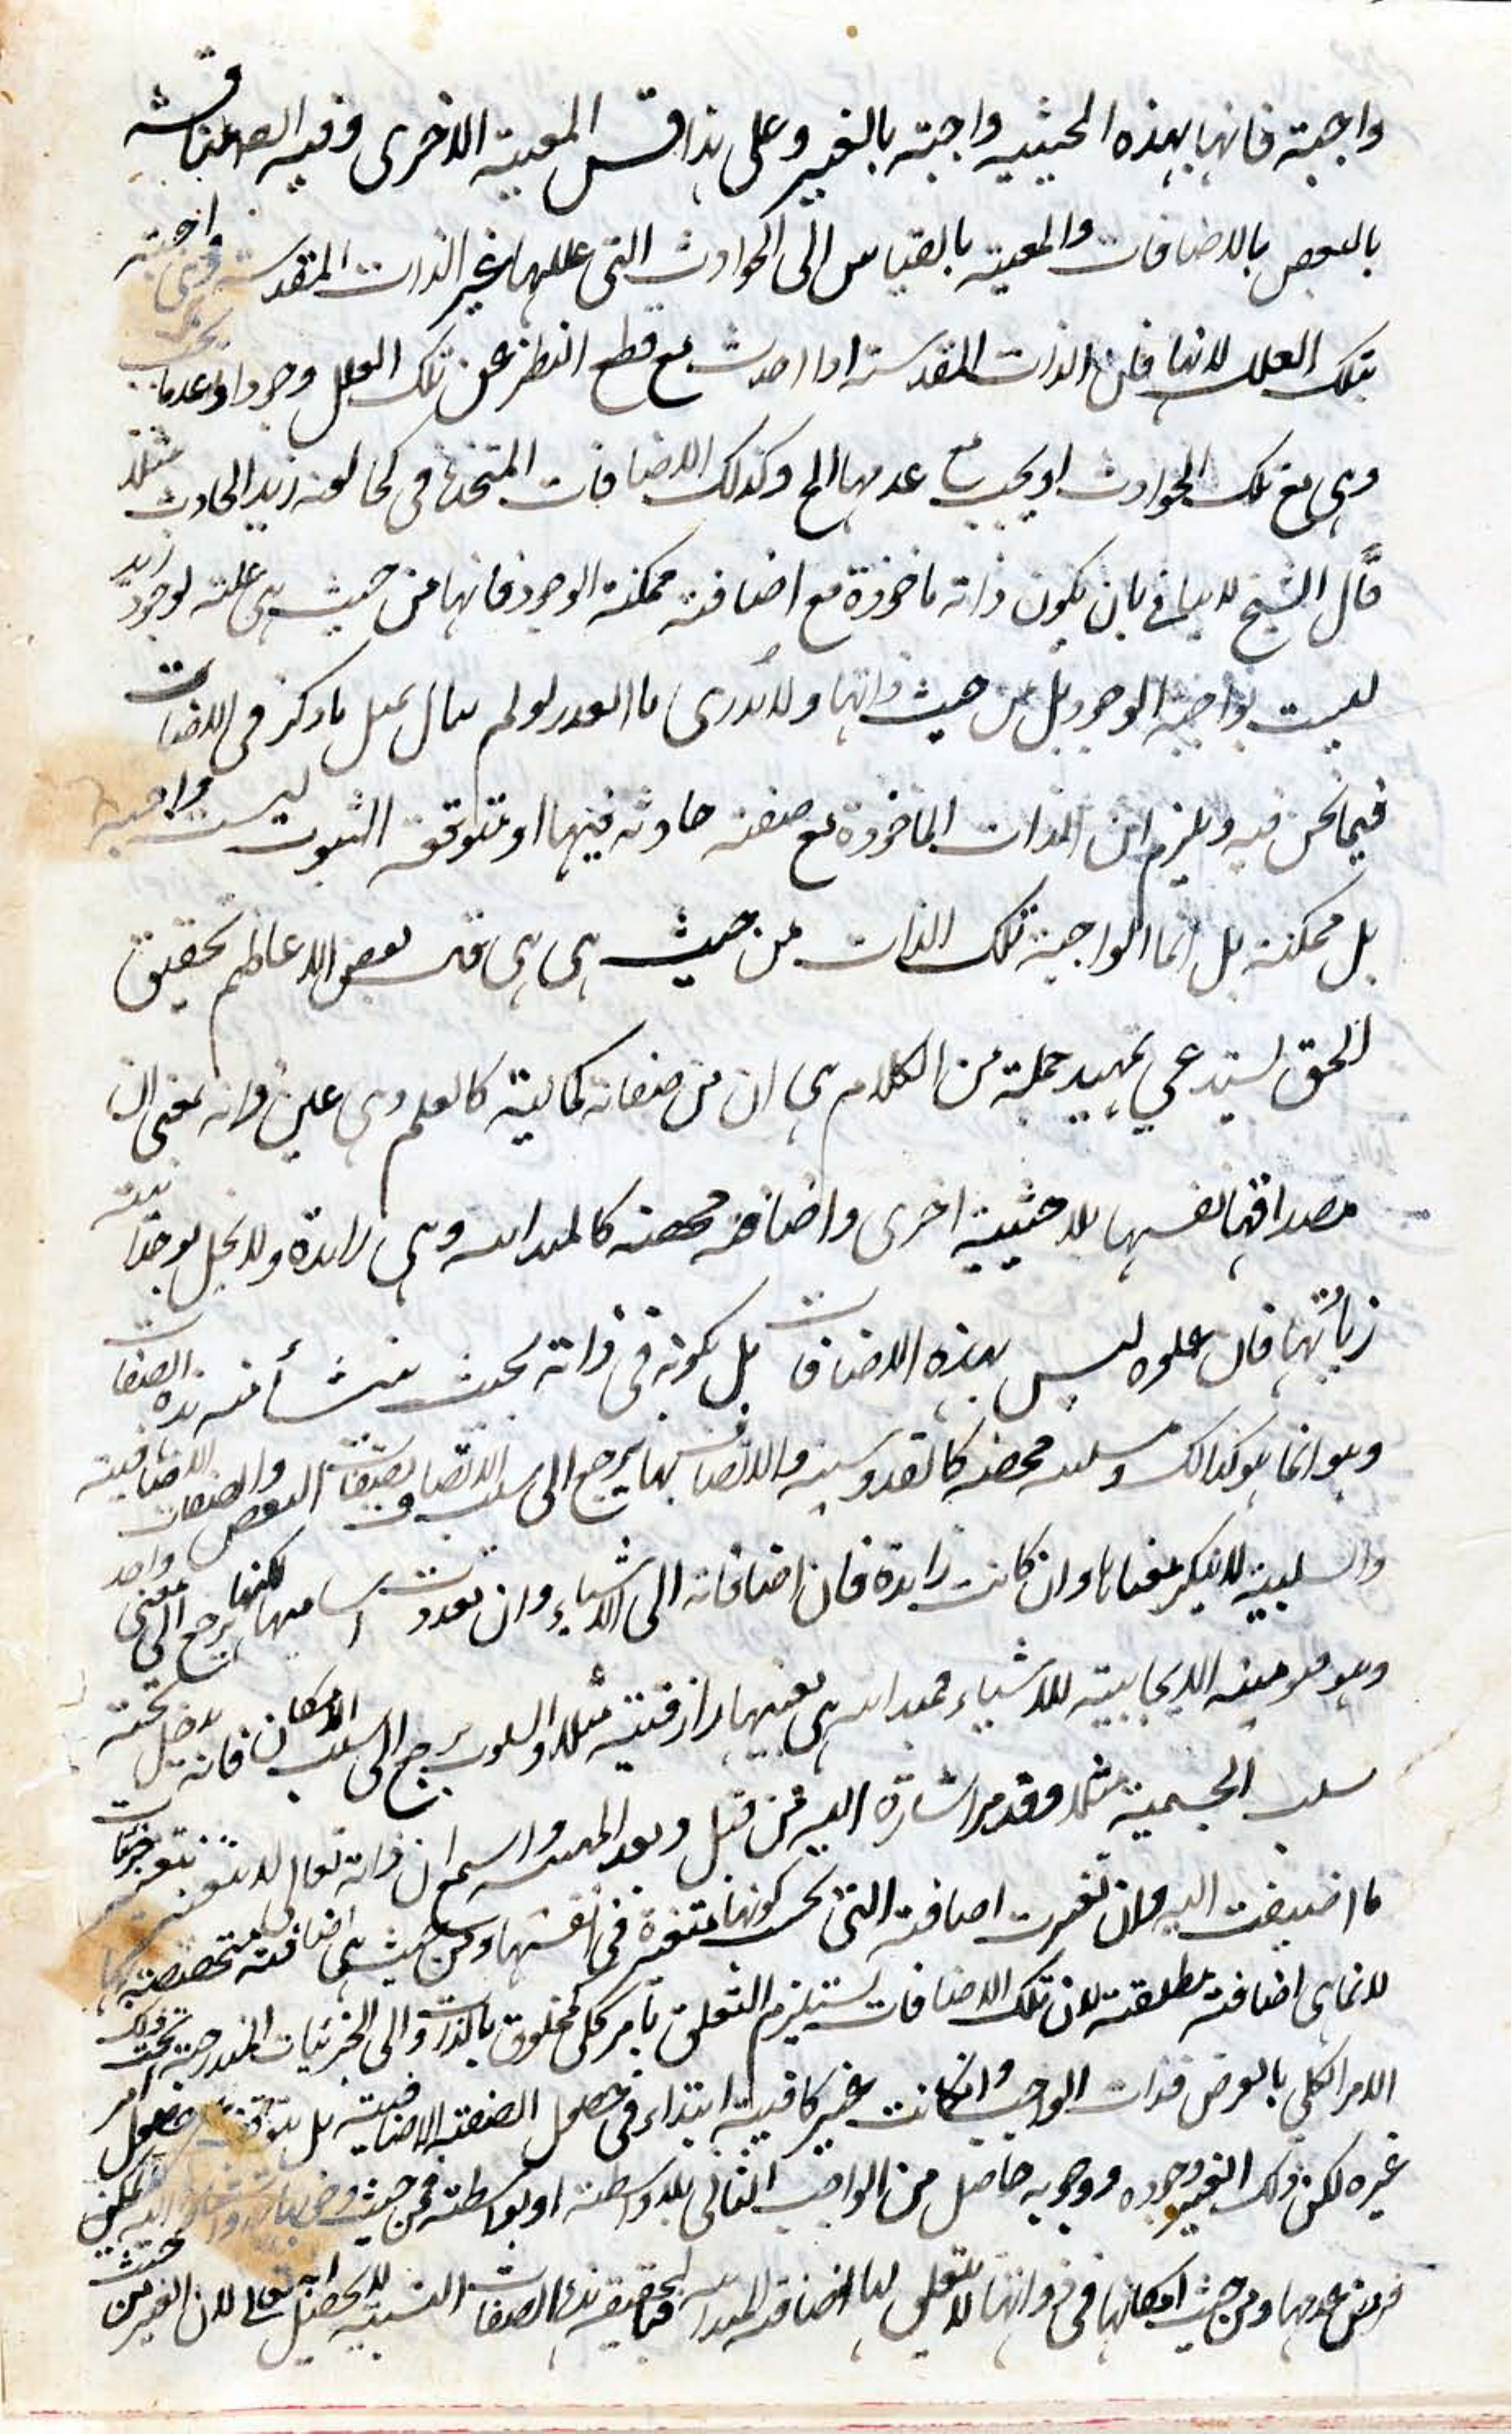 واجبة فانها بهذه الحيثية واجبة بالغير وعلى هذا قس المعية الاخرى وفيه المناقشة
بالنقض بالاضافات والمعية بالقياس الى الحوادث التي عللها غير الذات المقدسة
بتلك العلل لانها فان الذات المقدسة اذا اخذت مع قطع النظر عن تلك العلل وجودا وعدما
وهي مع تلك الحوادث او يجب مع عدمها الخ وكذلك الاضافات المتخذة في كخالقية زيد الحادث مثلا
قال الشيخ لا يبالي بان يكون ذاته ماخوذة مع اضافة ممكنة الوجود فانها من حيث هي علة لوجود زيد
ليست بواجبة الوجود بل من حيث ذاتها ولا يدرى ما العذر لو لم يبال بمثل ما ذكر في الاضافات
فيما نحن فيه ويلزم ان الذات الماخوذة مع صفة حادثة فيها او متوقفة الثبوت ليست واجبة
بل ممكنة بل انما الواجبة تلك الذات من حيث هي هي قال بعض الاعاظم تحقيق
الحق يستدعي تمهيد جملة من الكلام هي ان من صفاته كمالية كالعلم وهي عين ذاته بمعنى ان
مصداقها نفسها بلا حيثية اخرى واضافة محضة كالمبدائية وهي زائدة ولا يخل بوحدانيته
زيادتها فان علوه ليس بهذه الاضافات بل بكونه في ذاته بحيث ينشأ منه هذه الصفات
وهو انما هو كذلك وسلبية محضة كالقدوسية والاتصاف بها يرجع الى سلب الاتصاف بصفات النقص والصفات الاضافية
والسلبية لا يتكثر معناها وان كانت زائدة فان اضافاته الى الاشياء وان تعددت اساميها لكنها يرجع الى معنى واحد
وهو قيوميته الايجابية للاشياء فمبدائيته هي بعينها رازقيته مثلا والسلوب يرجع الى سلب الامكان فانه يدخل تحته
سلب الجسمية مثلا وقد مر اشارة اليه من قبل وبعد التمهيد واسمع ان ذاته تعالى لا يتغير بتغير جزئيات
ما اضيفت اليه وان تغيرت اضافته التي بحسب كونها متغيرة في انفسها ومن حيث هي اضافة متخصصة بها
لا نماهي اضافة مطلقة لان تلك الاضافات يستلزم التعلق بامر كلي كمخلوق بالذات والى الجزئيات المندرجة تحت ذلك
الامر الكلي بالعرض فذات الواجب وان كانت غير كافية ابتداء في حصول الصفة الاضافية بل يتوقف على حصول امر
غيره لكن ذلك الغير وجوده ووجوبه حاصل من الواجب تعالى بلا واسطة او بواسطة فمن حيث
فرض عدمها ومن حيث امكانها في ذواتها لا يتعلق لها اضافة المبدائية لحقيقة هذه الصفات النسبية لا يحصل له تعالى لان الغير من حيث